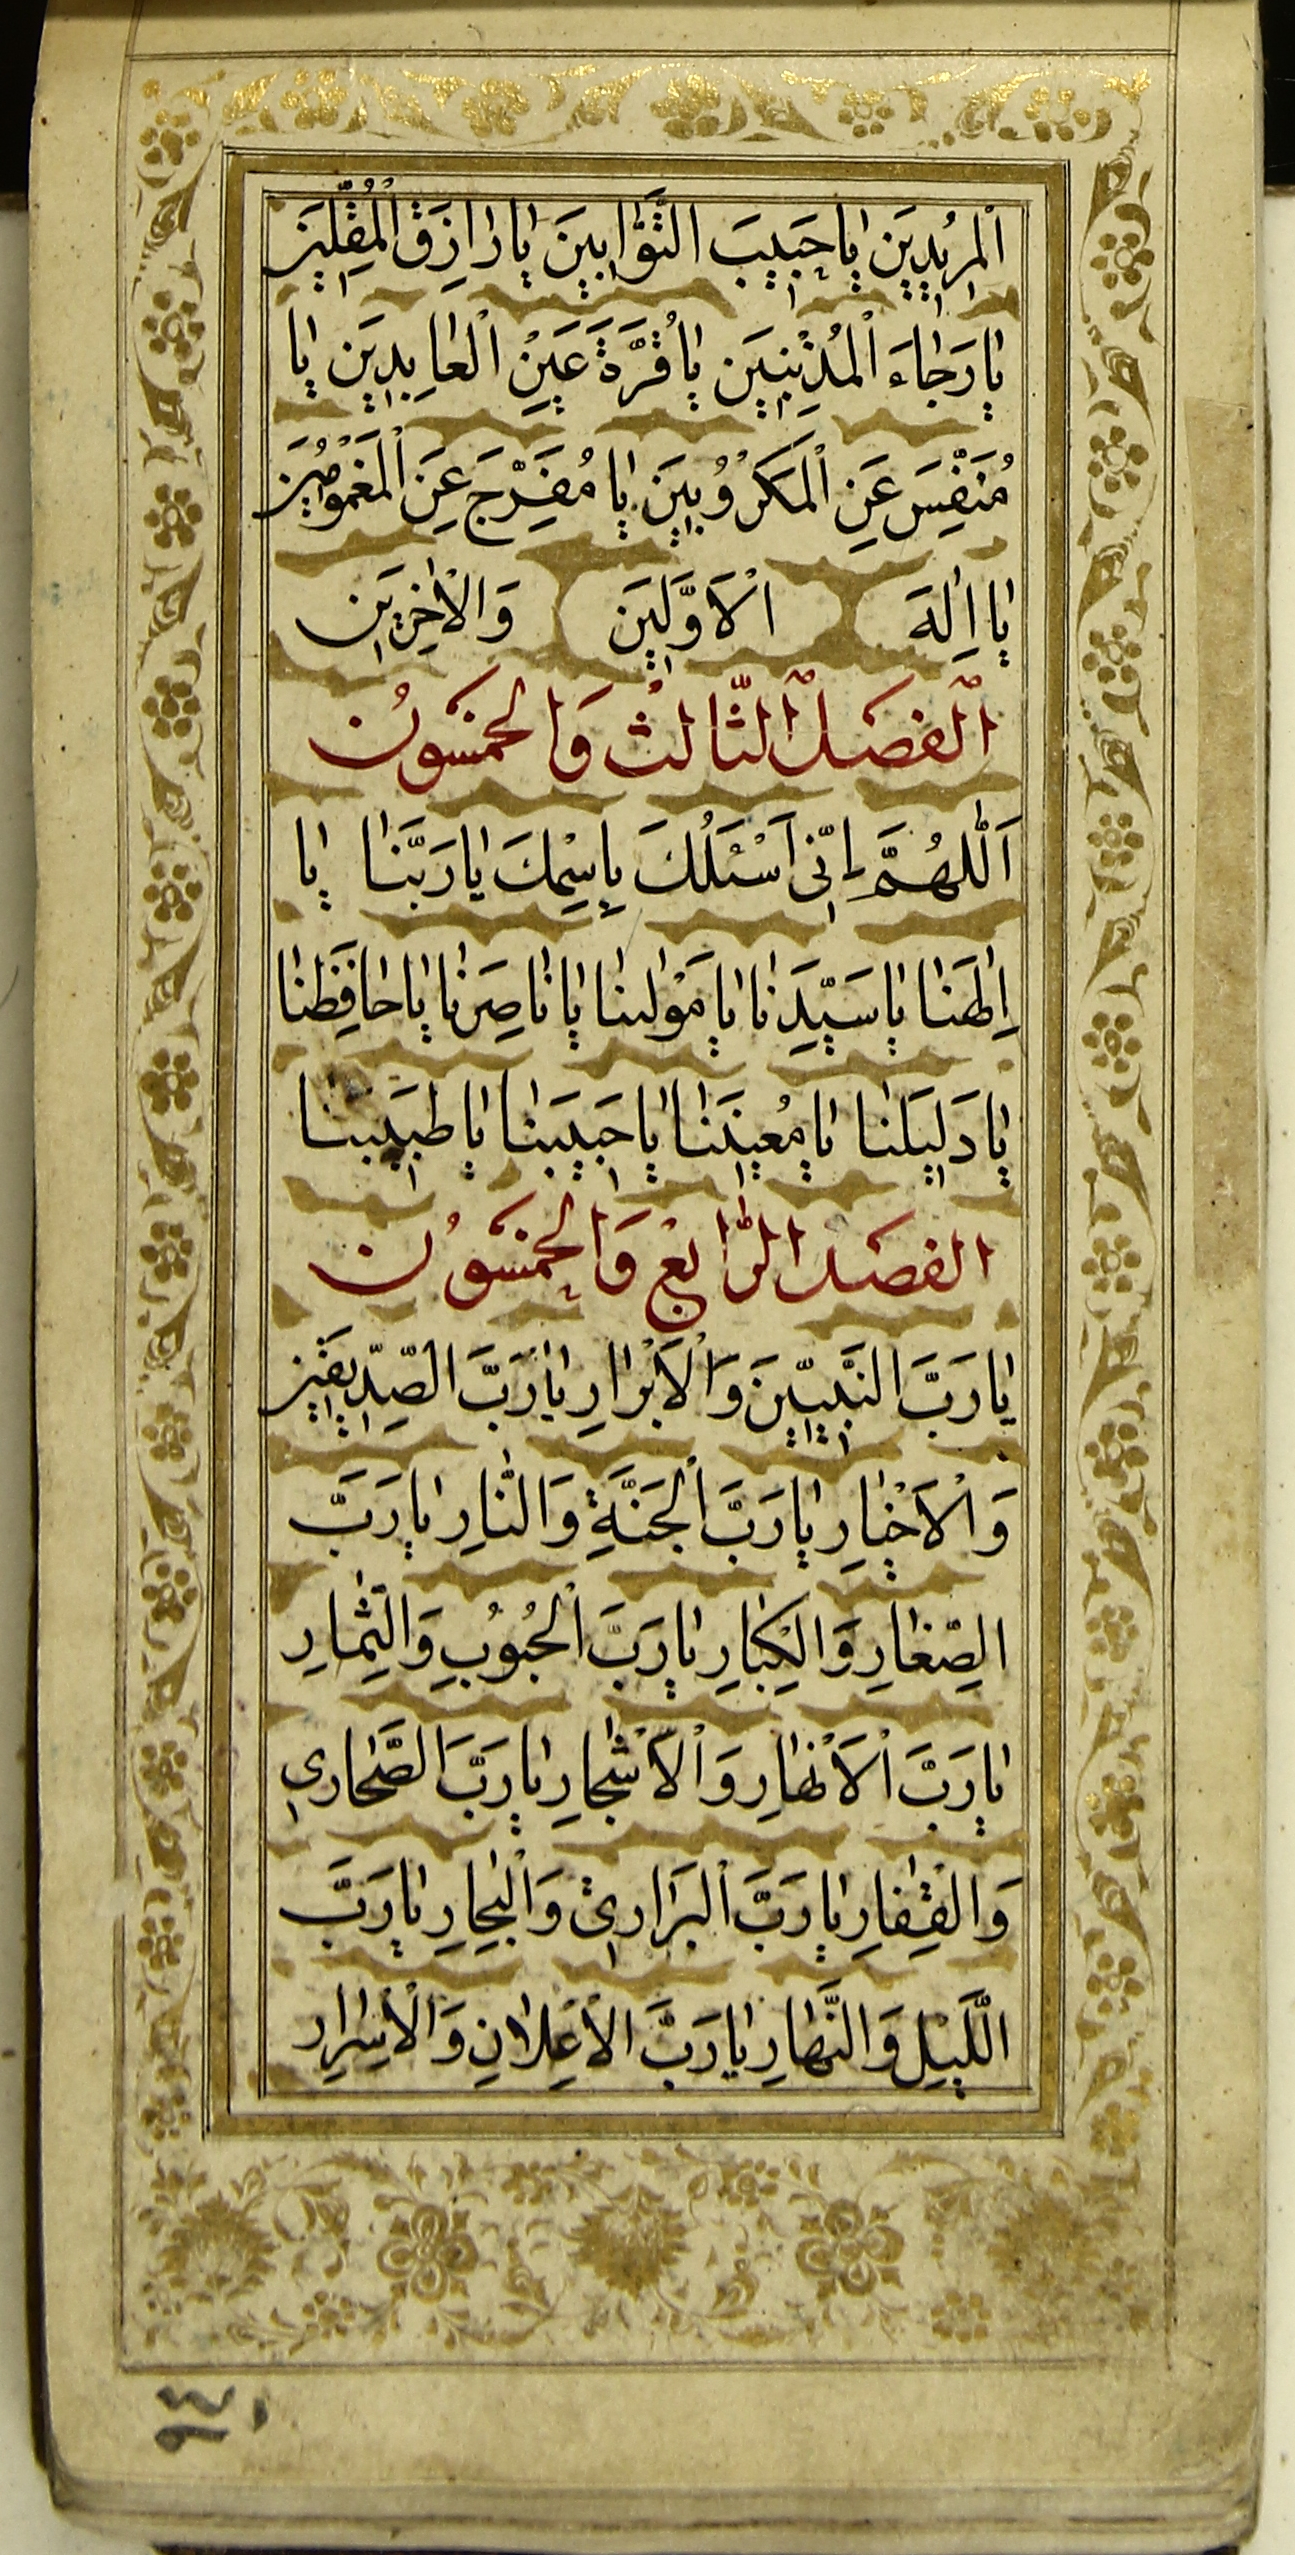 اَلْمُرِيْدِيَن يٰا حَبِيبَ التَّوّٰابِينَ يٰا رٰازِقَ الْمُقِلِّيَن
يٰا رَجٰاءَ الْمُذْنِبِيَن يٰا قُرَّةَ عَيْنِ الْعٰابِدِيَن يٰا
مُنَفِّسَ عَنِ الْمَكْرُوبِيَن يٰا مُفَرِّجَ عَنِ الْمَغْمُومِيَن
يٰا اِلٰهَ الْاَوَّلِيَن وَالْاٰخِرِيَن
اَلْفَصْلُ الثّالِثُ وَالخَمْسُونُ
اَللّٰهُمَّ اِنّى اَسْئَلُكَ بِاسْمِكَ يٰا رَبَّنٰا يٰا
اِلٰهَنٰا يٰا سَيِّدَنٰا يٰا مَوْلٰينٰا يٰا نٰاصِرَنٰا يٰا حٰافِظَنٰا
يٰا دَلِيلَنٰا يٰا مُعِينَنٰا يٰا حَبِيبَنٰا يٰا طَبِيبَنٰا
الفصلُ الرّٰابعُ وَالخمسُوُن
يٰا رَبَّ النَّبِيّيَن وَالْاَبْرٰارِ يٰا رَبَّ الصِّدّيقيَن
وَالْاَخْيٰارِ يٰا رَبَّ الْجَنَّةِ وَالنّٰارِ يٰا رَبَّ
الصِّغٰارِ وَالْكِبٰارِ يٰا رَبَّ الْحُبُوُبِ وَالثِّمٰارِ
يٰا رَبَّ الْاَنْهٰارِ وَالْاَشْجٰارِ يٰا رَبَّ الصَّحٰارِى
وَالْقِفٰارِ يٰا رَبَّ الْبَرَارِى وَالْبِحٰارِ يٰا رَبَّ
اللَّيْلِ وَالنَّهٰارِ يٰا رَبَّ الْاَعْلٰانِ وَالْاَسْرٰارِ